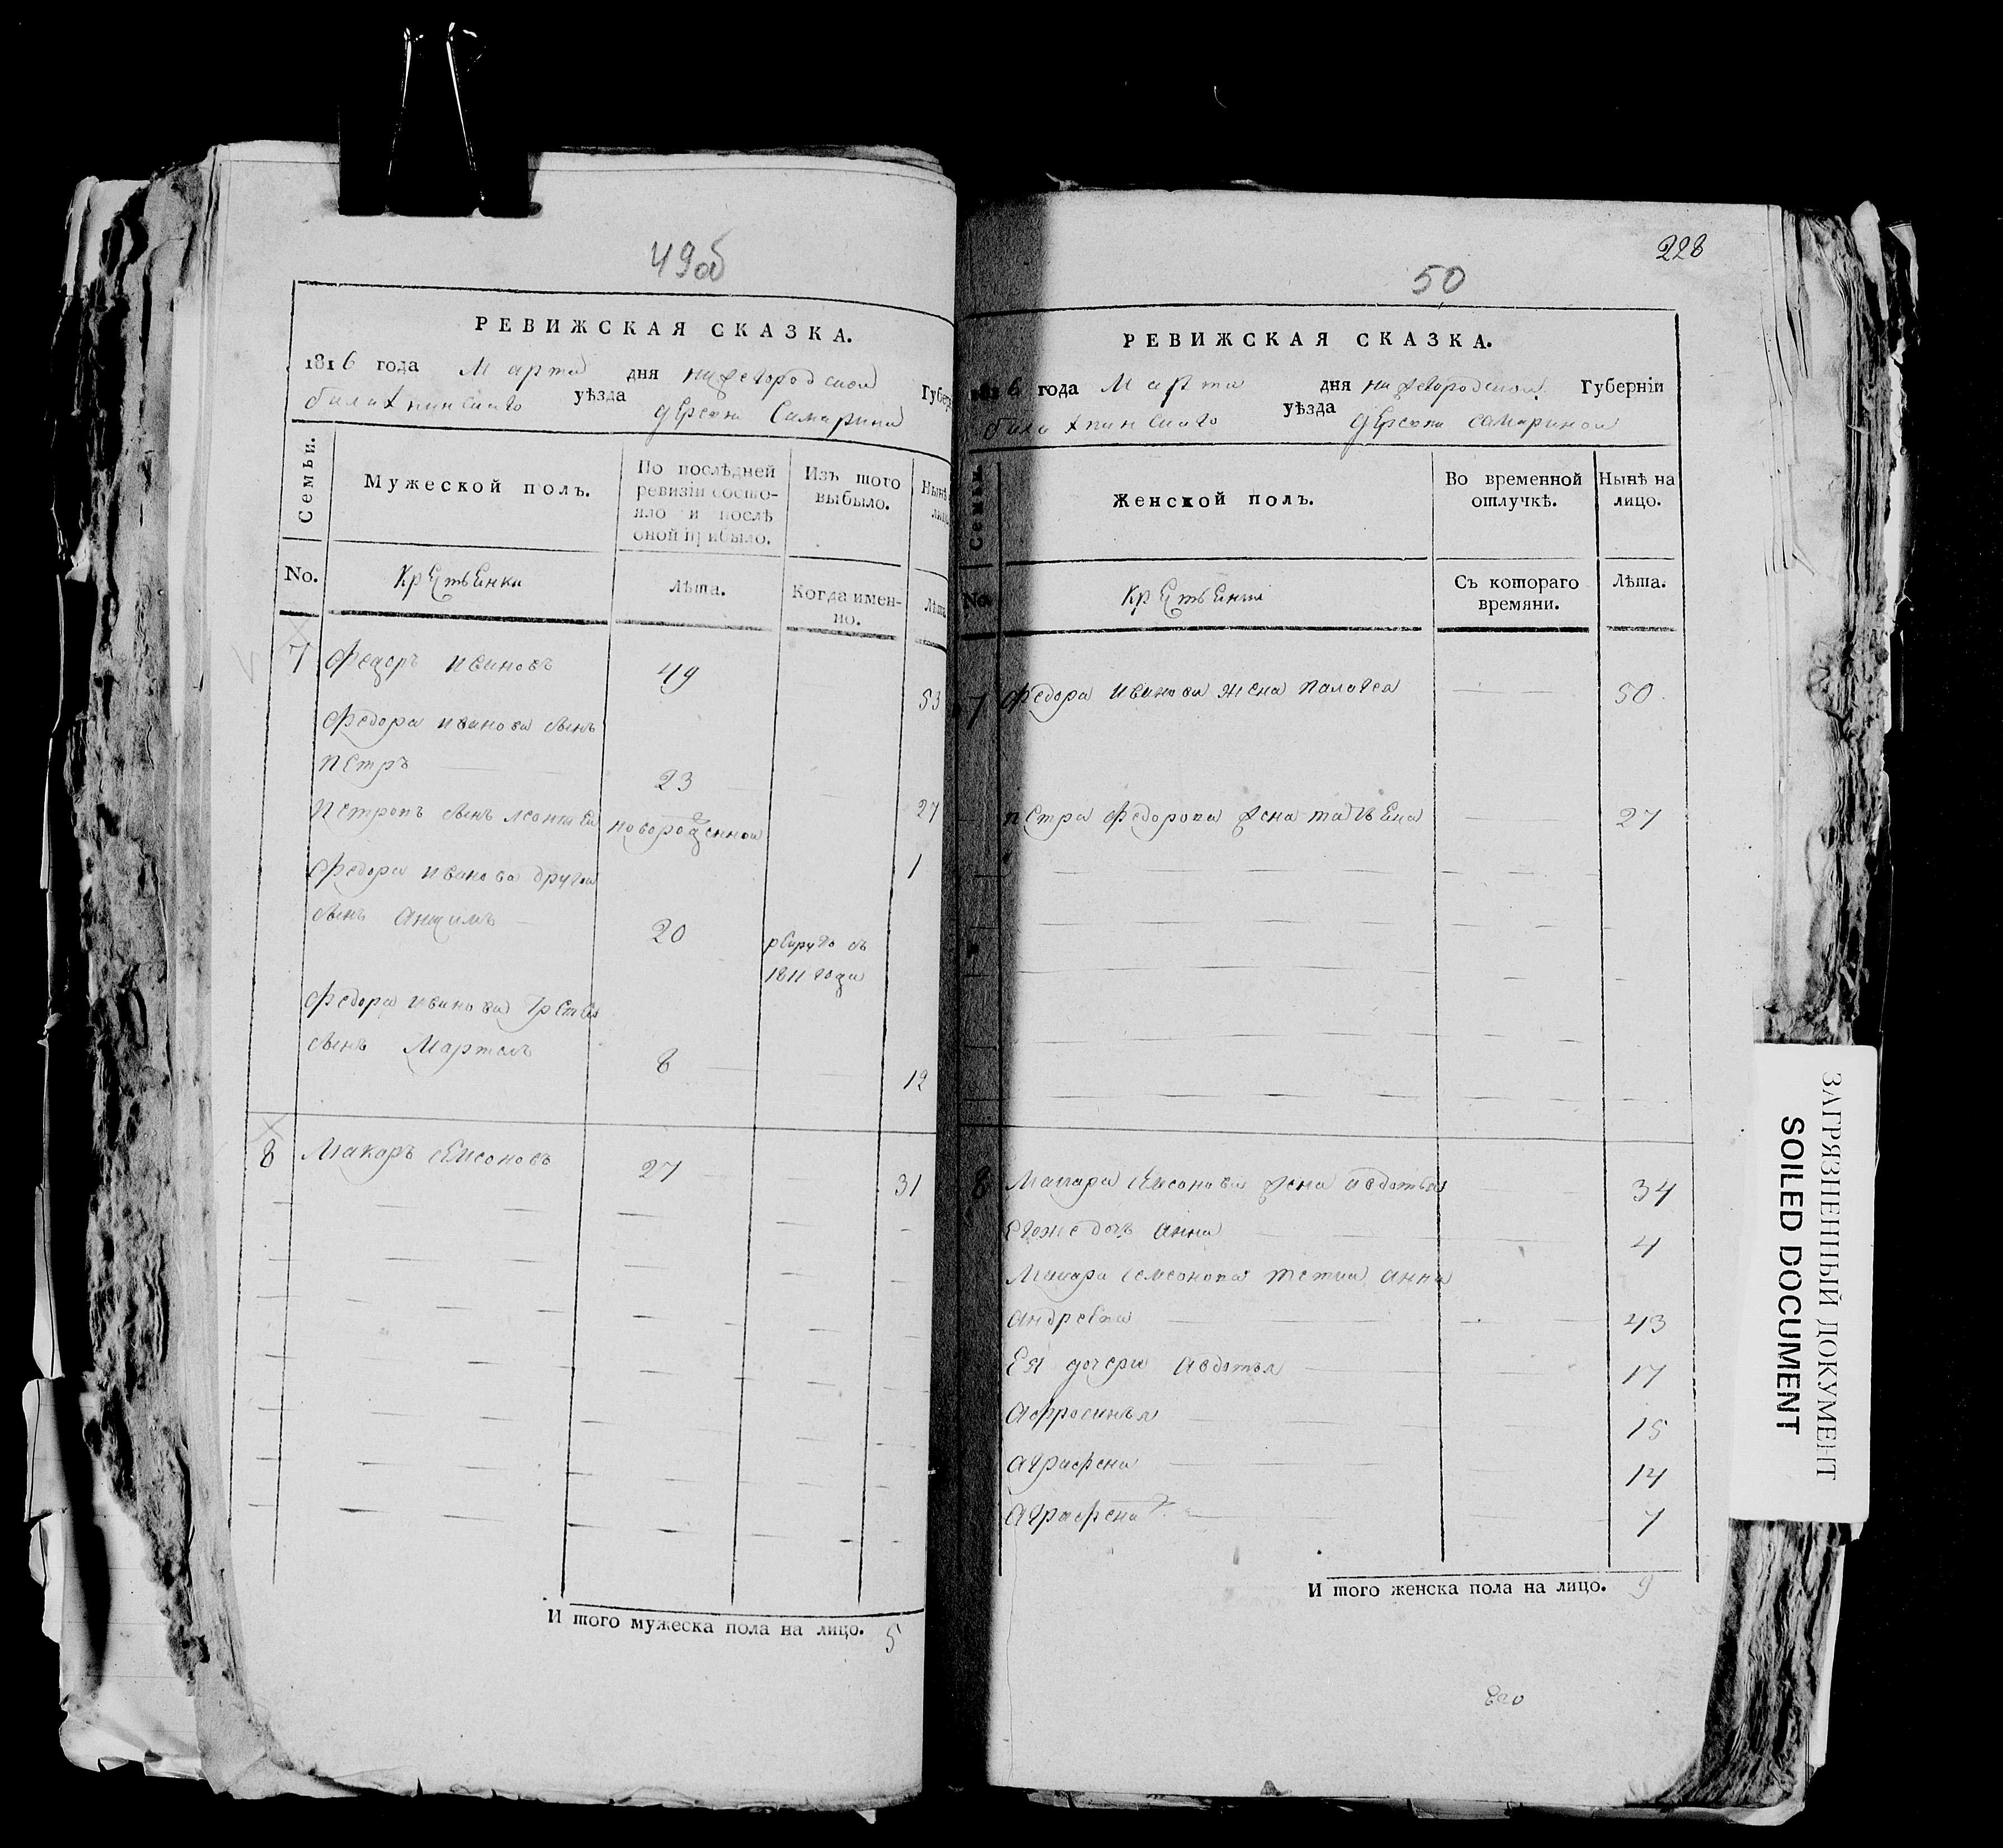 49об
РЕВИЖСКАЯ СКАЗКА.
1816 года Марта дня нижегородской Губер
балахнинскаго уѣзда дерєвни Самарина
Семьи.
Мужеской полъ.
По послѣдней ревизіи состо-
яло и послѣ оной прибыло.
Изъ того выбыло.
Нынѣ лицо
No.
Крестьянки
Лѣта.
Когда имен-
но.
Лѣта
7 Федоръ ивановъ 49 53
Федора иванова сынъ
петръ 23 27
петровъ сынъ леонтей новорожденной 1
Федора иванова другой
сынъ Анѳимъ 20 рекрутъ въ
1811 года
Федора иванова третей
сынъ Мартынъ 8 12
8 Макаръ семеоновъ 27 31
И того мужеска пола на лицо. 5
228
50
РЕВИЖСКАЯ СКАЗКА.
1816 года Марта дня нижегородской Губерніи
балахнинскаго уѣзда деревни самариной
Семьи.
Женской полъ.
Во временной
отлучкѣ.
Нынѣ на
лицо.
No.
Съ котораго
времяни.
Лѣта.
7 Федора иванова жена палагея 50
петра Федорова жена татьяна 27
8 Макара семеонова жена авдотья 34
егоже дочь анна 4
Макара семеонова тетка анна
андрева 43
Ея дочери авдотья 17
Афросинья 15
аграфена 14
Аграфена 7
И того женска пола на лицо. 9
Его
ЗАГРЯЗНЕННЫЙ ДОКУМЕНТ
SOILED DOCUMENT